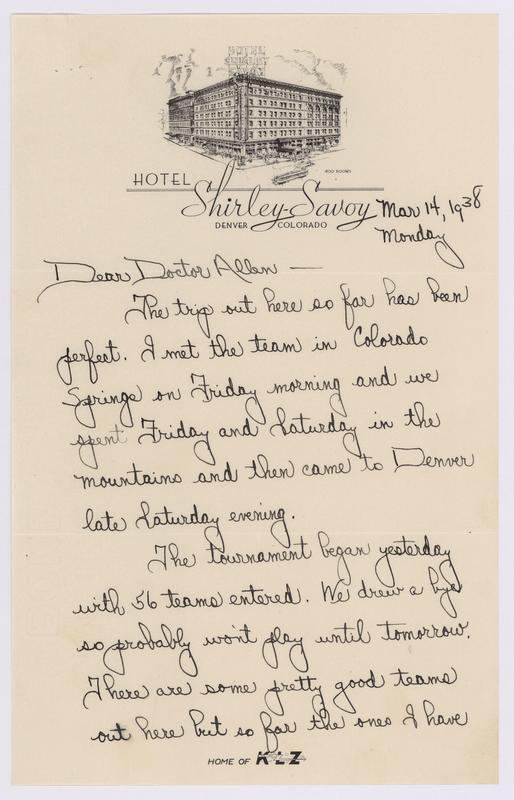 400 ROOMS
HOTEL
Shirley-Savoy
DENVER COLORADO
Mar 14, 1938
Monday
Dear Doctor Allen —
The trip out here so far has been
perfect. I met the team in Colorado
Springs on Friday morning and we
spent Friday and Saturday in the
mountains and then came to Denver
late Saturday evening.
The tournament began yesterday
with 56 teams entered. We drew a bye
so probably won't play until tomorrow.
There are some pretty good teams
out here but so far the ones I have
HOME OF KLZ